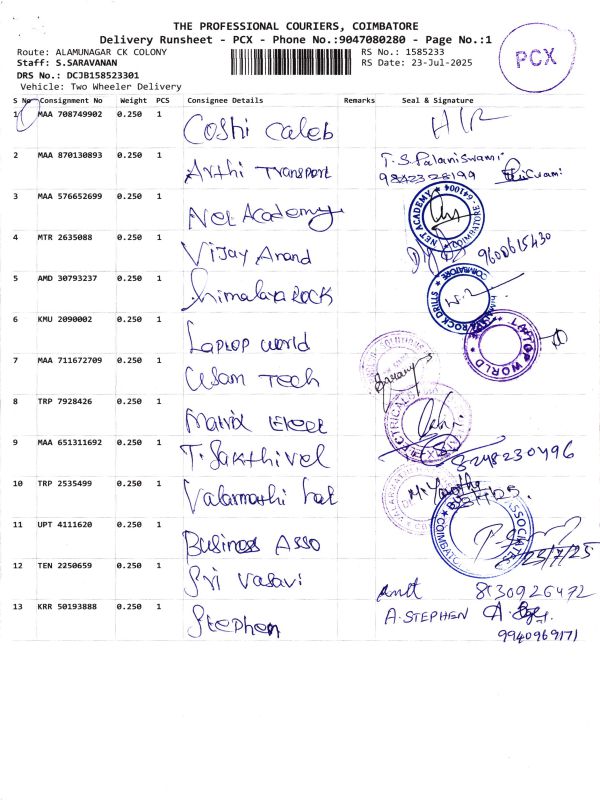 THE PROFESSIONAL COURIERS, COIMBATORE
Delivery Runsheet - PCX - Phone No.:9047080280 - Page No.:1
Route: ALAMUNAGAR CK COLONY
Staff: S.SARAVANAN
DRS No.: DCJB158523301
Vehicle: Two Wheeler Delivery
RS No.: 1585233
RS Date: 23-Jul-2025
PCX
S No Consignment No Weight PCS Consignee Details Remarks Seal & Signature
1 MAA 708749902 0.250 1 Coshi Caleb
2 MAA 870130893 0.250 1 Arthi Transport T.S.Palaniswami
9842328199
3 MAA 576652699 0.250 1 Net Academy NET ACADEMY COIMBATORE 641004
4 MTR 2635088 0.250 1 Vijay Anand 9600615430
5 AMD 30793237 0.250 1 Himalaya Rock ROCK DRILLS COIMBATORE
6 KMU 2090002 0.250 1 Laptop world LAPTOP WORLD
7 MAA 711672709 0.250 1 Tech
8 TRP 7928426 0.250 1 Matrix ELECTRICALS
9 MAA 651311692 0.250 1 T. Sakthivel 8248230496
10 TRP 2535499 0.250 1 Valarmathi
11 UPT 4111620 0.250 1 Business Asso ASSOCIATES
23/7/25
12 TEN 2250659 0.250 1 Sri Vasavi 8130926472
13 KRR 50193888 0.250 1 Stephen A. STEPHEN
9940969171